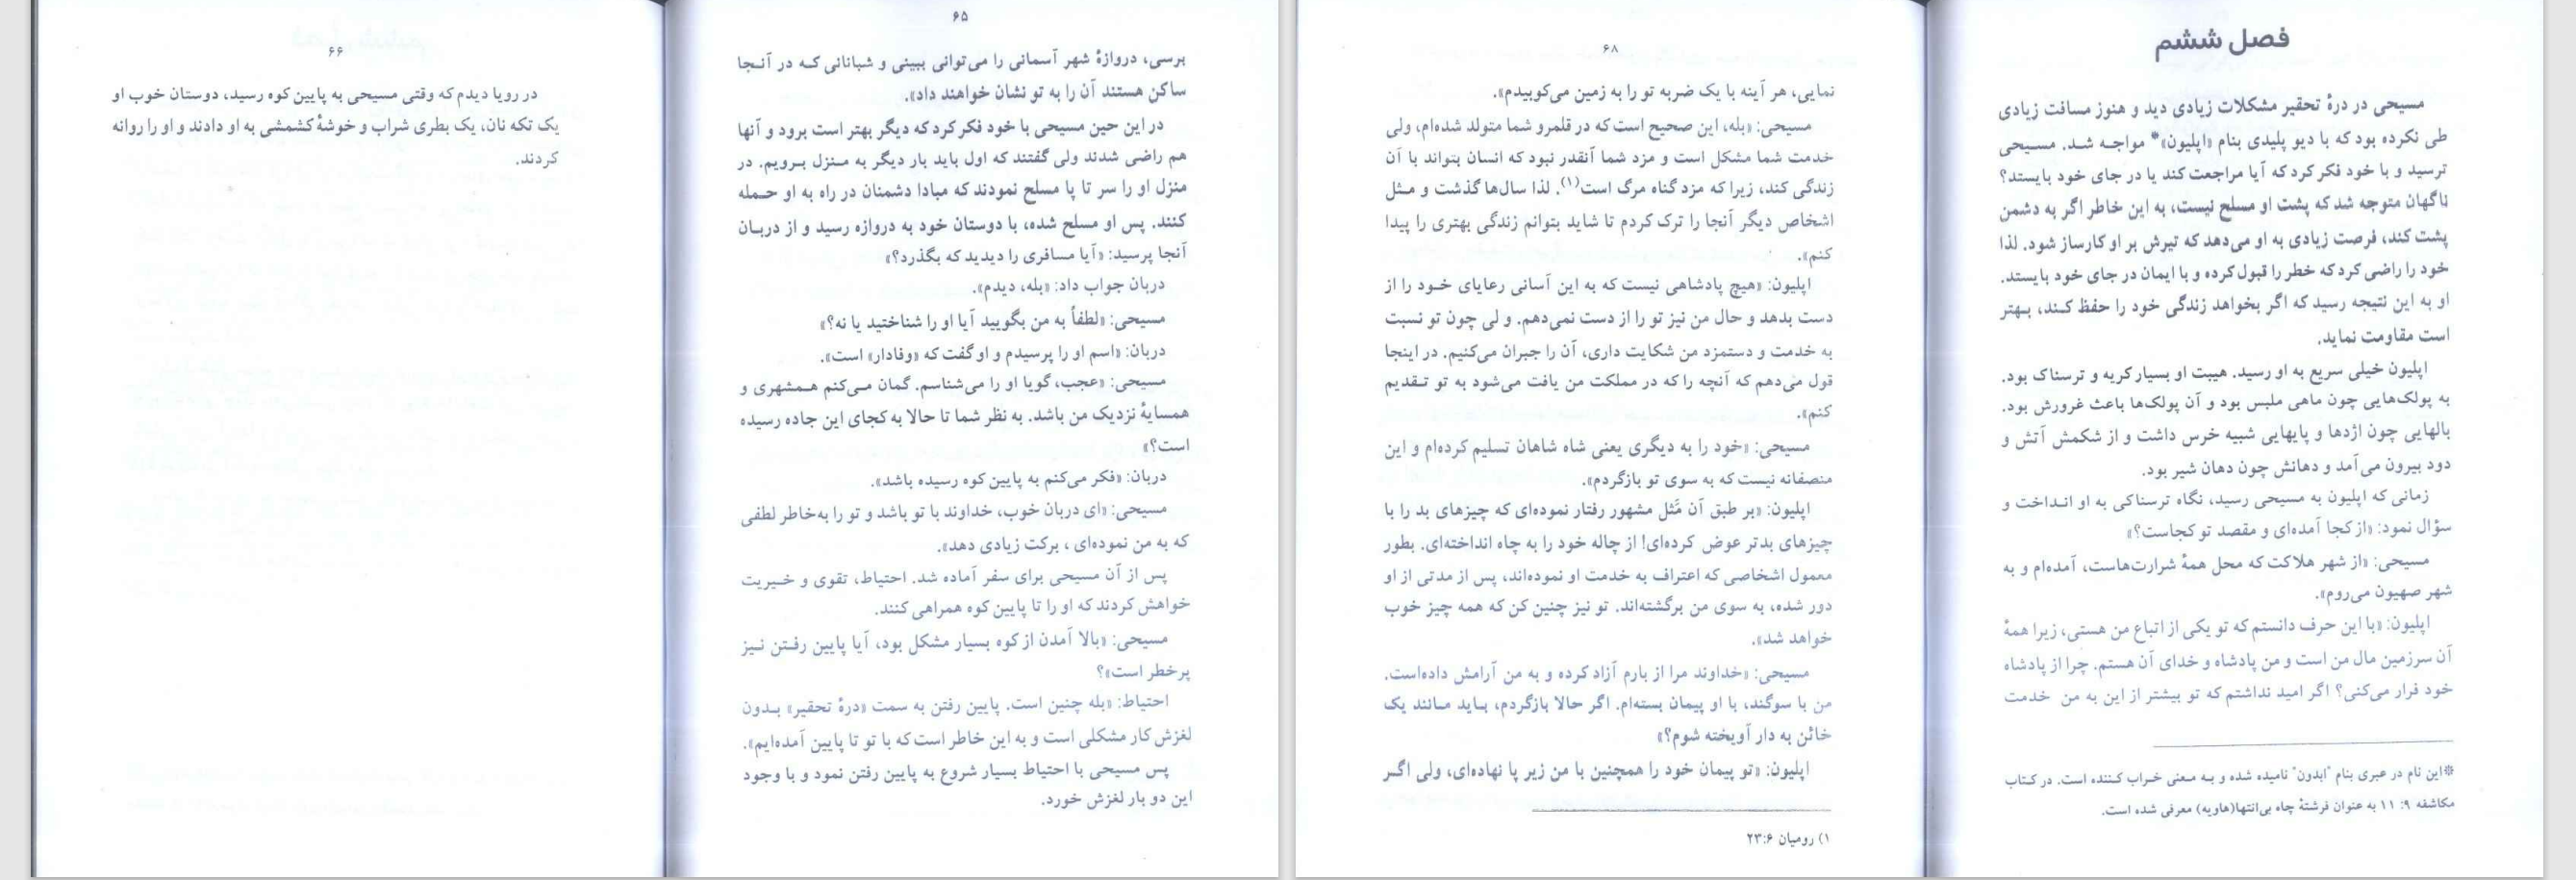 ۶۵
برسی، دروازهٔ شهر آسمانی را می‌توانی ببینی و شبانانی که در آنجا
ساکن هستند آن را به تو نشان خواهند داد».
در این حین مسیحی با خود فکر کرد که دیگر بهتر است برود و آنها
هم راضی شدند ولی گفتند که اول باید بار دیگر به منزل برویم. در
منزل او را سر تا پا مسلح نمودند که مبادا دشمنان در راه به او حمله
کنند. پس او مسلح شده، با دوستان خود به دروازه رسید و از دربان
آنجا پرسید: «آیا مسافری را دیدید که بگذرد؟»
دربان جواب داد: «بله، دیدم».
مسیحی: «لطفاً به من بگویید آیا او را شناختید یا نه؟»
دربان: «اسم او را پرسیدم و او گفت که «وفادار» است».
مسیحی: «عجب، گویا او را می‌شناسم. گمان می‌کنم همشهری و
همسایهٔ نزدیک من باشد. به نظر شما تا حالا به کجای این جاده رسیده
است؟»
دربان: «فکر می‌کنم به پایین کوه رسیده باشد».
مسیحی: «ای دربان خوب، خداوند با تو باشد و تو را به‌خاطر لطفی
که به من نموده‌ای ، برکت زیادی دهد».
پس از آن مسیحی برای سفر آماده شد. احتیاط، تقوی و خیریت
خواهش کردند که او را تا پایین کوه همراهی کنند.
مسیحی: «بالا آمدن از کوه بسیار مشکل بود، آیا پایین رفتن نیز
پرخطر است»؟
احتیاط: «بله چنین است. پایین رفتن به سمت «درهٔ تحقیر» بدون
لغزش کار مشکلی است و به این خاطر است که با تو تا پایین آمده‌ایم».
پس مسیحی با احتیاط بسیار شروع به پایین رفتن نمود و با وجود
این دو بار لغزش خورد.
۶۶
در رویا دیدم که وقتی مسیحی به پایین کوه رسید، دوستان خوب او
یک تکه نان، یک بطری شراب و خوشهٔ کشمشی به او دادند و او را روانه
کردند.
فصل ششم
مسیحی در درهٔ تحقیر مشکلات زیادی دید و هنوز مسافت زیادی
طی نکرده بود که با دیو پلیدی بنام «اپلیون»* مواجه شد. مسیحی
ترسید و با خود فکر کرد که آیا مراجعت کند یا در جای خود بایستد؟
ناگهان متوجه شد که پشت او مسلح نیست، به این خاطر اگر به دشمن
پشت کند، فرصت زیادی به او می‌دهد که تیرش بر او کارساز شود. لذا
خود را راضی کرد که خطر را قبول کرده و با ایمان در جای خود بایستد.
او به این نتیجه رسید که اگر بخواهد زندگی خود را حفظ کند، بهتر
است مقاومت نماید.
اپلیون خیلی سریع به او رسید. هیبت او بسیار کریه و ترسناک بود.
به پولک‌هایی چون ماهی ملبس بود و آن پولک‌ها باعث غرورش بود.
بالهایی چون اژدها و پایهایی شبیه خرس داشت و از شکمش آتش و
دود بیرون می‌آمد و دهانش چون دهان شیر بود.
زمانی که اپلیون به مسیحی رسید، نگاه ترسناکی به او انداخت و
سؤال نمود: «از کجا آمده‌ای و مقصد تو کجاست؟»
مسیحی: «از شهر هلاکت که محل همهٔ شرارت‌هاست، آمده‌ام و به
شهر صهیون می‌روم».
اپلیون: «با این حرف دانستم که تو یکی از اتباع من هستی، زیرا همهٔ
آن سرزمین مال من است و من پادشاه و خدای آن هستم. چرا از پادشاه
خود فرار می‌کنی؟ اگر امید نداشتم که تو بیشتر از این به من خدمت
*این نام در عبری بنام "ابدون" نامیده شده و به معنی خراب کننده است. در کتاب
مکاشفه ۹: ۱۱ به عنوان فرشتهٔ چاه بی‌انتها(هاویه) معرفی شده است.
۶۸
نمایی، هر آینه با یک ضربه تو را به زمین می‌کوبیدم».
مسیحی: «بله، این صحیح است که در قلمرو شما متولد شده‌ام، ولی
خدمت شما مشکل است و مزد شما آنقدر نبود که انسان بتواند با آن
زندگی کند، زیرا که مزد گناه مرگ است(۱). لذا سال‌ها گذشت و مثل
اشخاص دیگر آنجا را ترک کردم تا شاید بتوانم زندگی بهتری را پیدا
کنم».
اپلیون: «هیچ پادشاهی نیست که به این آسانی رعایای خود را از
دست بدهد و حال من نیز تو را از دست نمی‌دهم. و لی چون تو نسبت
به خدمت و دستمزد من شکایت داری، آن را جبران می‌کنیم. در اینجا
قول می‌دهم که آنچه را که در مملکت من یافت می‌شود به تو تقدیم
کنم».
مسیحی: «خود را به دیگری یعنی شاه شاهان تسلیم کرده‌ام و این
منصفانه نیست که به سوی تو بازگردم».
اپلیون: «بر طبق آن مَثل مشهور رفتار نموده‌ای که چیزهای بد را با
چیزهای بدتر عوض کرده‌ای! از چاله خود را به چاه انداخته‌ای. بطور
معمول اشخاصی که اعتراف به خدمت او نموده‌اند، پس از مدتی از او
دور شده، به سوی من برگشته‌اند. تو نیز چنین کن که همه چیز خوب
خواهد شد».
مسیحی: «خداوند مرا از بارم آزاد کرده و به من آرامش داده‌است.
من با سوگند، با او پیمان بسته‌ام. اگر حالا بازگردم، باید مانند یک
خائن به دار آویخته شوم؟»
اپلیون: «تو پیمان خود را همچنین با من زیر پا نهاده‌ای، ولی اگر
۱) رومیان ۶:‏۲۳